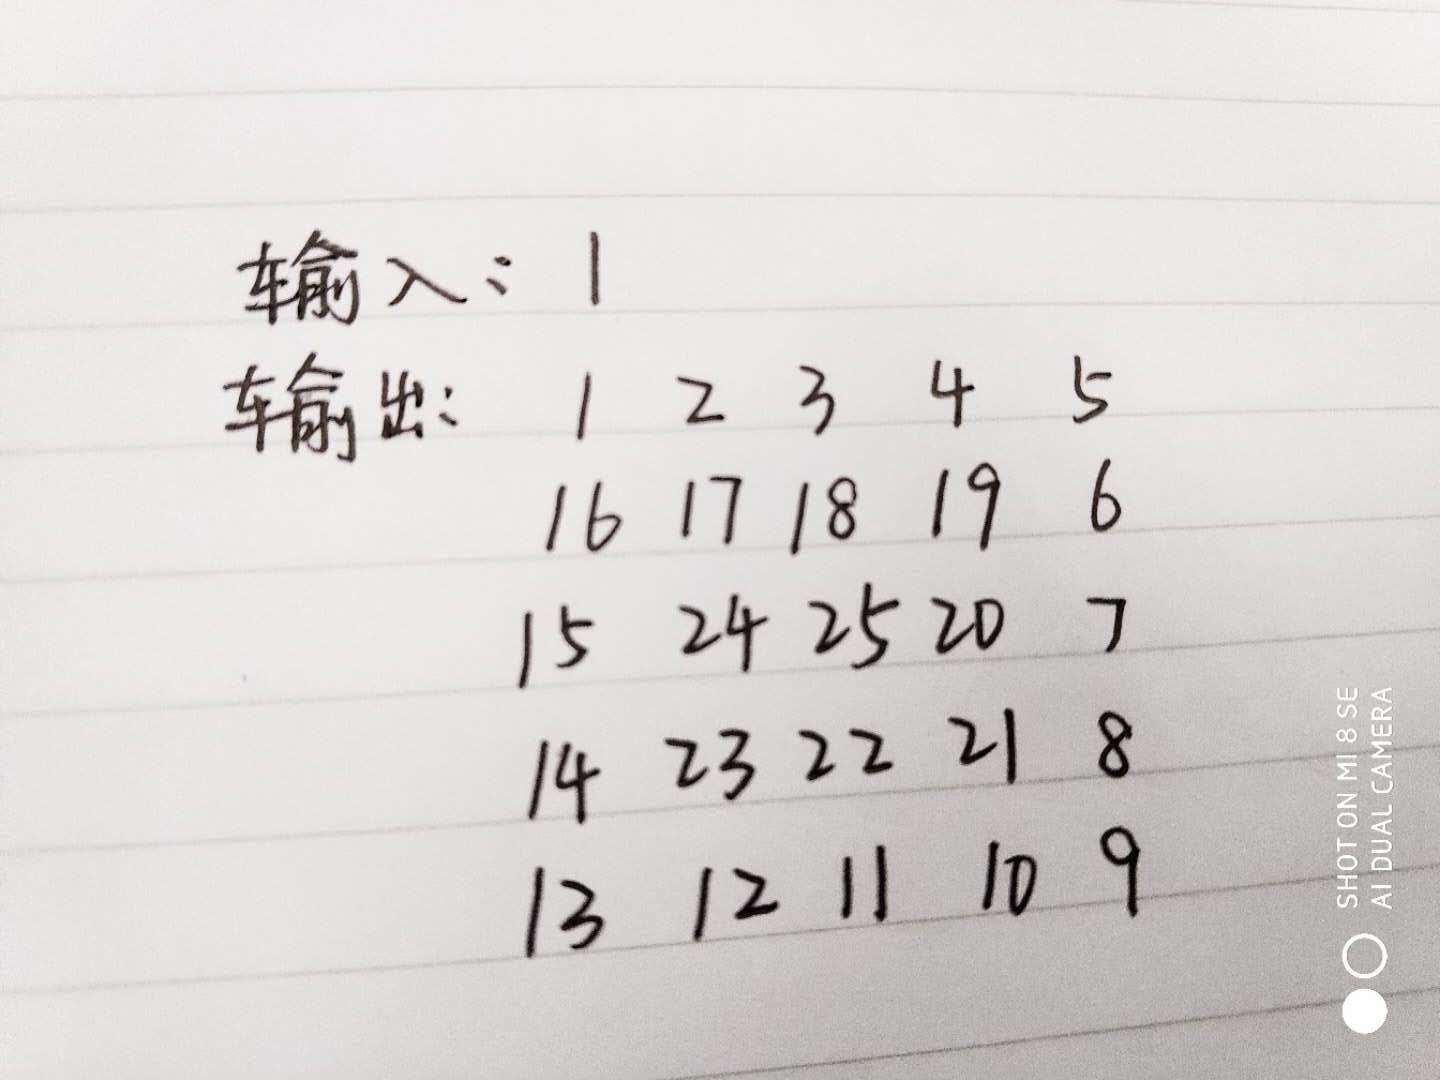 输入: 1
输出: 1 2 3 4 5
16 17 18 19 6
15 24 25 20 7
14 23 22 21 8
13 12 11 10 9
SHOT ON MI 8 SE
AI DUAL CAMERA